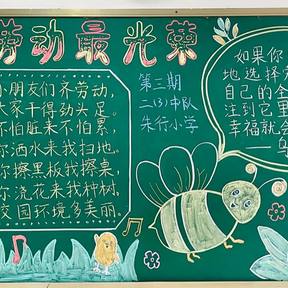 劳动最光荣
小朋友们齐劳动，
大家干得劲头足。
不怕脏来不怕累，
你洒水来我扫地。
你擦黑板我擦桌，
你浇花来我种树，
校园环境多美丽。
第三期
二(3)中队
朱行小学
如果你
地选择
自己的全
注到它里
幸福就会
——乌